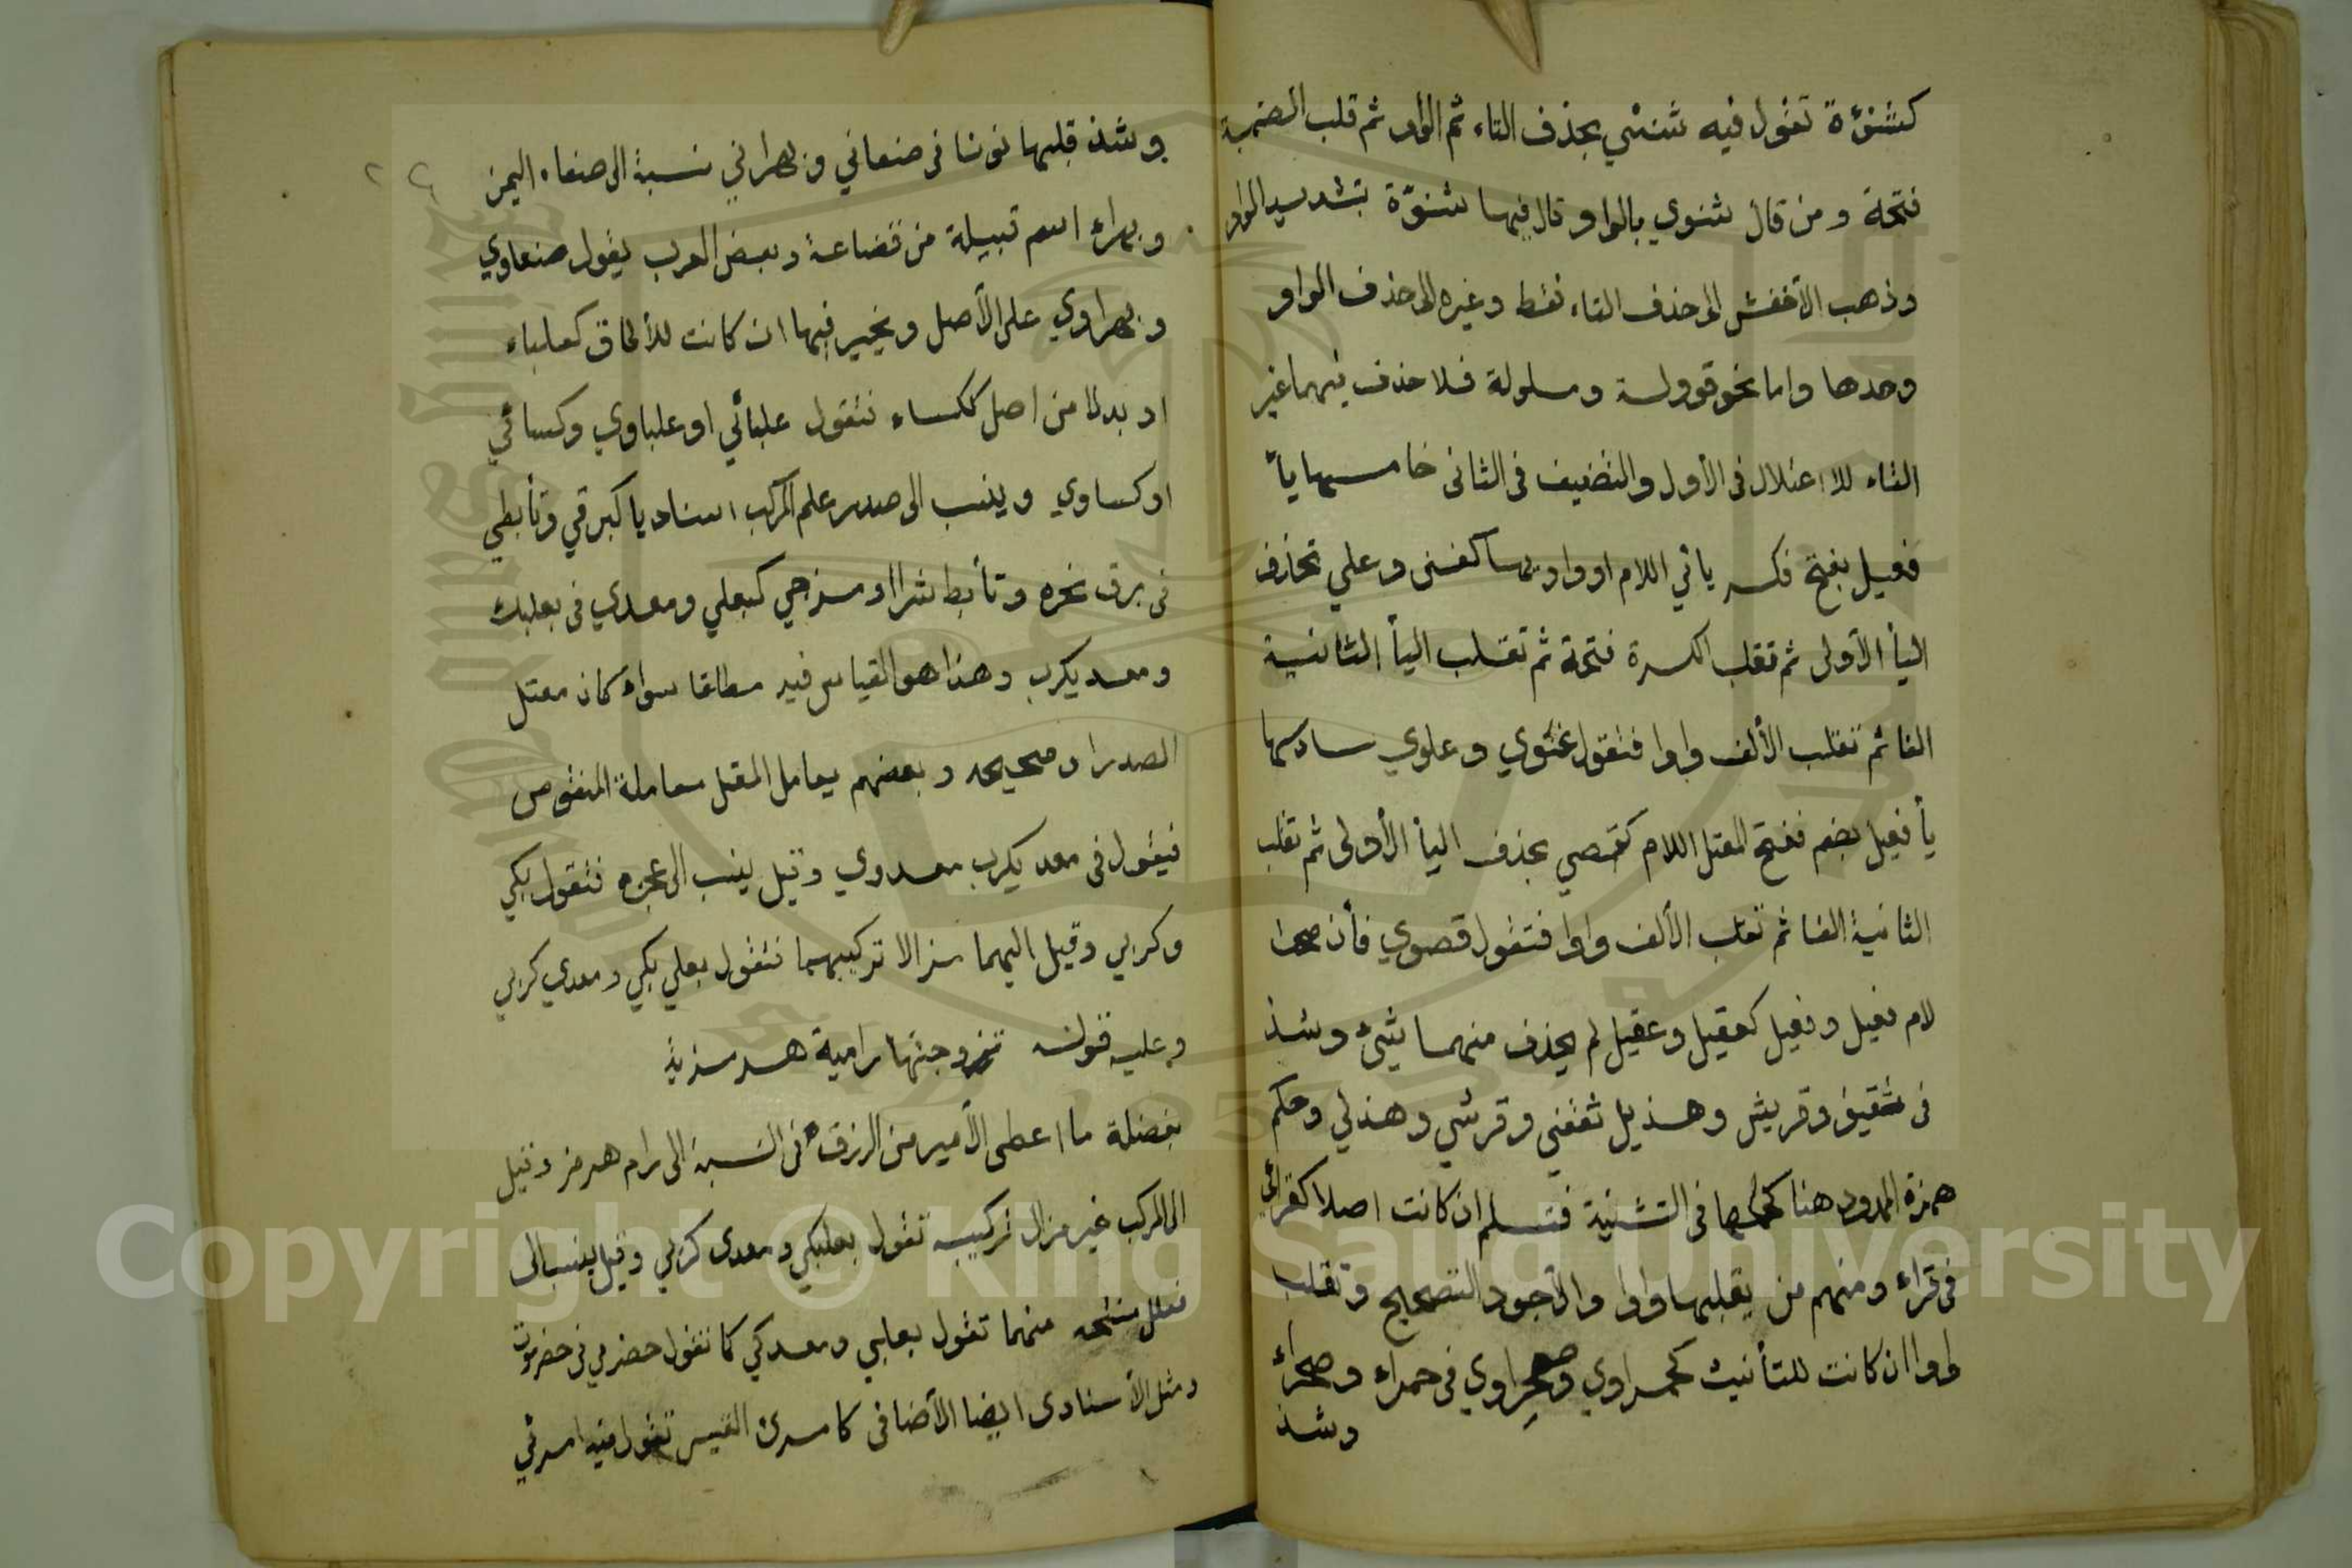 كشنؤة تقول فيه شنئي بحذف التاء ثم الواو ثم قلب الضمة
فتحة ومن قال شنوي بالواو قال فيها شنوّة بتشديد الواو
وذهب الأخفش الى حذف التاء فقط وغيره الى حذف الواو
وحدها واما نحو قوولة وملولة فلا حذف فيهما غير
التاء للاعتلال في الأول والتضعيف في الثانى خامسها يأ
فعيل بفتح فكسر يائي اللام او واويها كغنى وعلي تحذف
اليأ الأولى ثم تقلب الكسرة فتحة ثم تقلب اليأ الثانية
الفا ثم تقلب الألف واوا فتقول غنوي وعلوي سادسها
يأ فعيل بضم ففتح المعتل اللام كقصي بحذف اليأ الأولى ثم تقلب
الثانية الفا ثم تقلب الألف واوا فتقول قصوي فأن صحا
لام فعيل وفعيل كعقيل وعقيل لم يحذف منهما شئ وشذ
فى ثقيف وقريش وهذيل ثقفي وقرشي وهذلي وحكم
همزة الممدود هنا كحكمها فى التثنية فتسلم ان كانت اصلا كقرائي
فى قراء ومنهم من يقلبها واوا والأجود التصحيح وتقلب
واوا ان كانت للتأنيث كحمراوي وصحراوي فى حمراء وصحراء
وشذ
وشذ قلبها نونا فى صنعاني وبهراني نسبة الى صنعاء اليمن
وبهراء اسم قبيلة من قضاعة وبعض العرب يقول صنعاوي
وبهراوي على الأصل ويخير فيها ان كانت للألحاق كعلباء
او بدلا من اصل ككساء فتقول علبائي او علباوي وكسائي
او كساوي وينسب الى صدر علم المركب اسناديا كبرقي وتأبطي
فى برق نحره وتأبط شرا او مزجي كبعلي ومعدي فى بعلبك
ومعديكرب وهذا هو القياس فيه مطلقا سواء كان معتل
الصدر او صحيحه وبعضهم يعامل المعتل معاملة المنقوص
فيقول فى معديكرب معدوي وقيل ينسب الى عجزه فتقول بكي
وكربي وقيل اليهما مزالا تركيبهما فتقول بعلي بكي ومعدي كربي
وعليه قوله تزوجتها رامية هرمزية
بفضلة ما اعطى الأمير من الرزق فى النسبة الى رام هرمز وقيل
الى المركب غير مزال تركيبه تقول بعلبكي ومعدى كربي وقيل ينسب الى
فعلل منتحه منهما تقول بعلبي ومعدكي كما تقول حضرمي فى حضرموت
ومثل الأسنادى ايضا الأضافى كامرئ القيس تقول فيه امرئي
Copyright © King Saud University